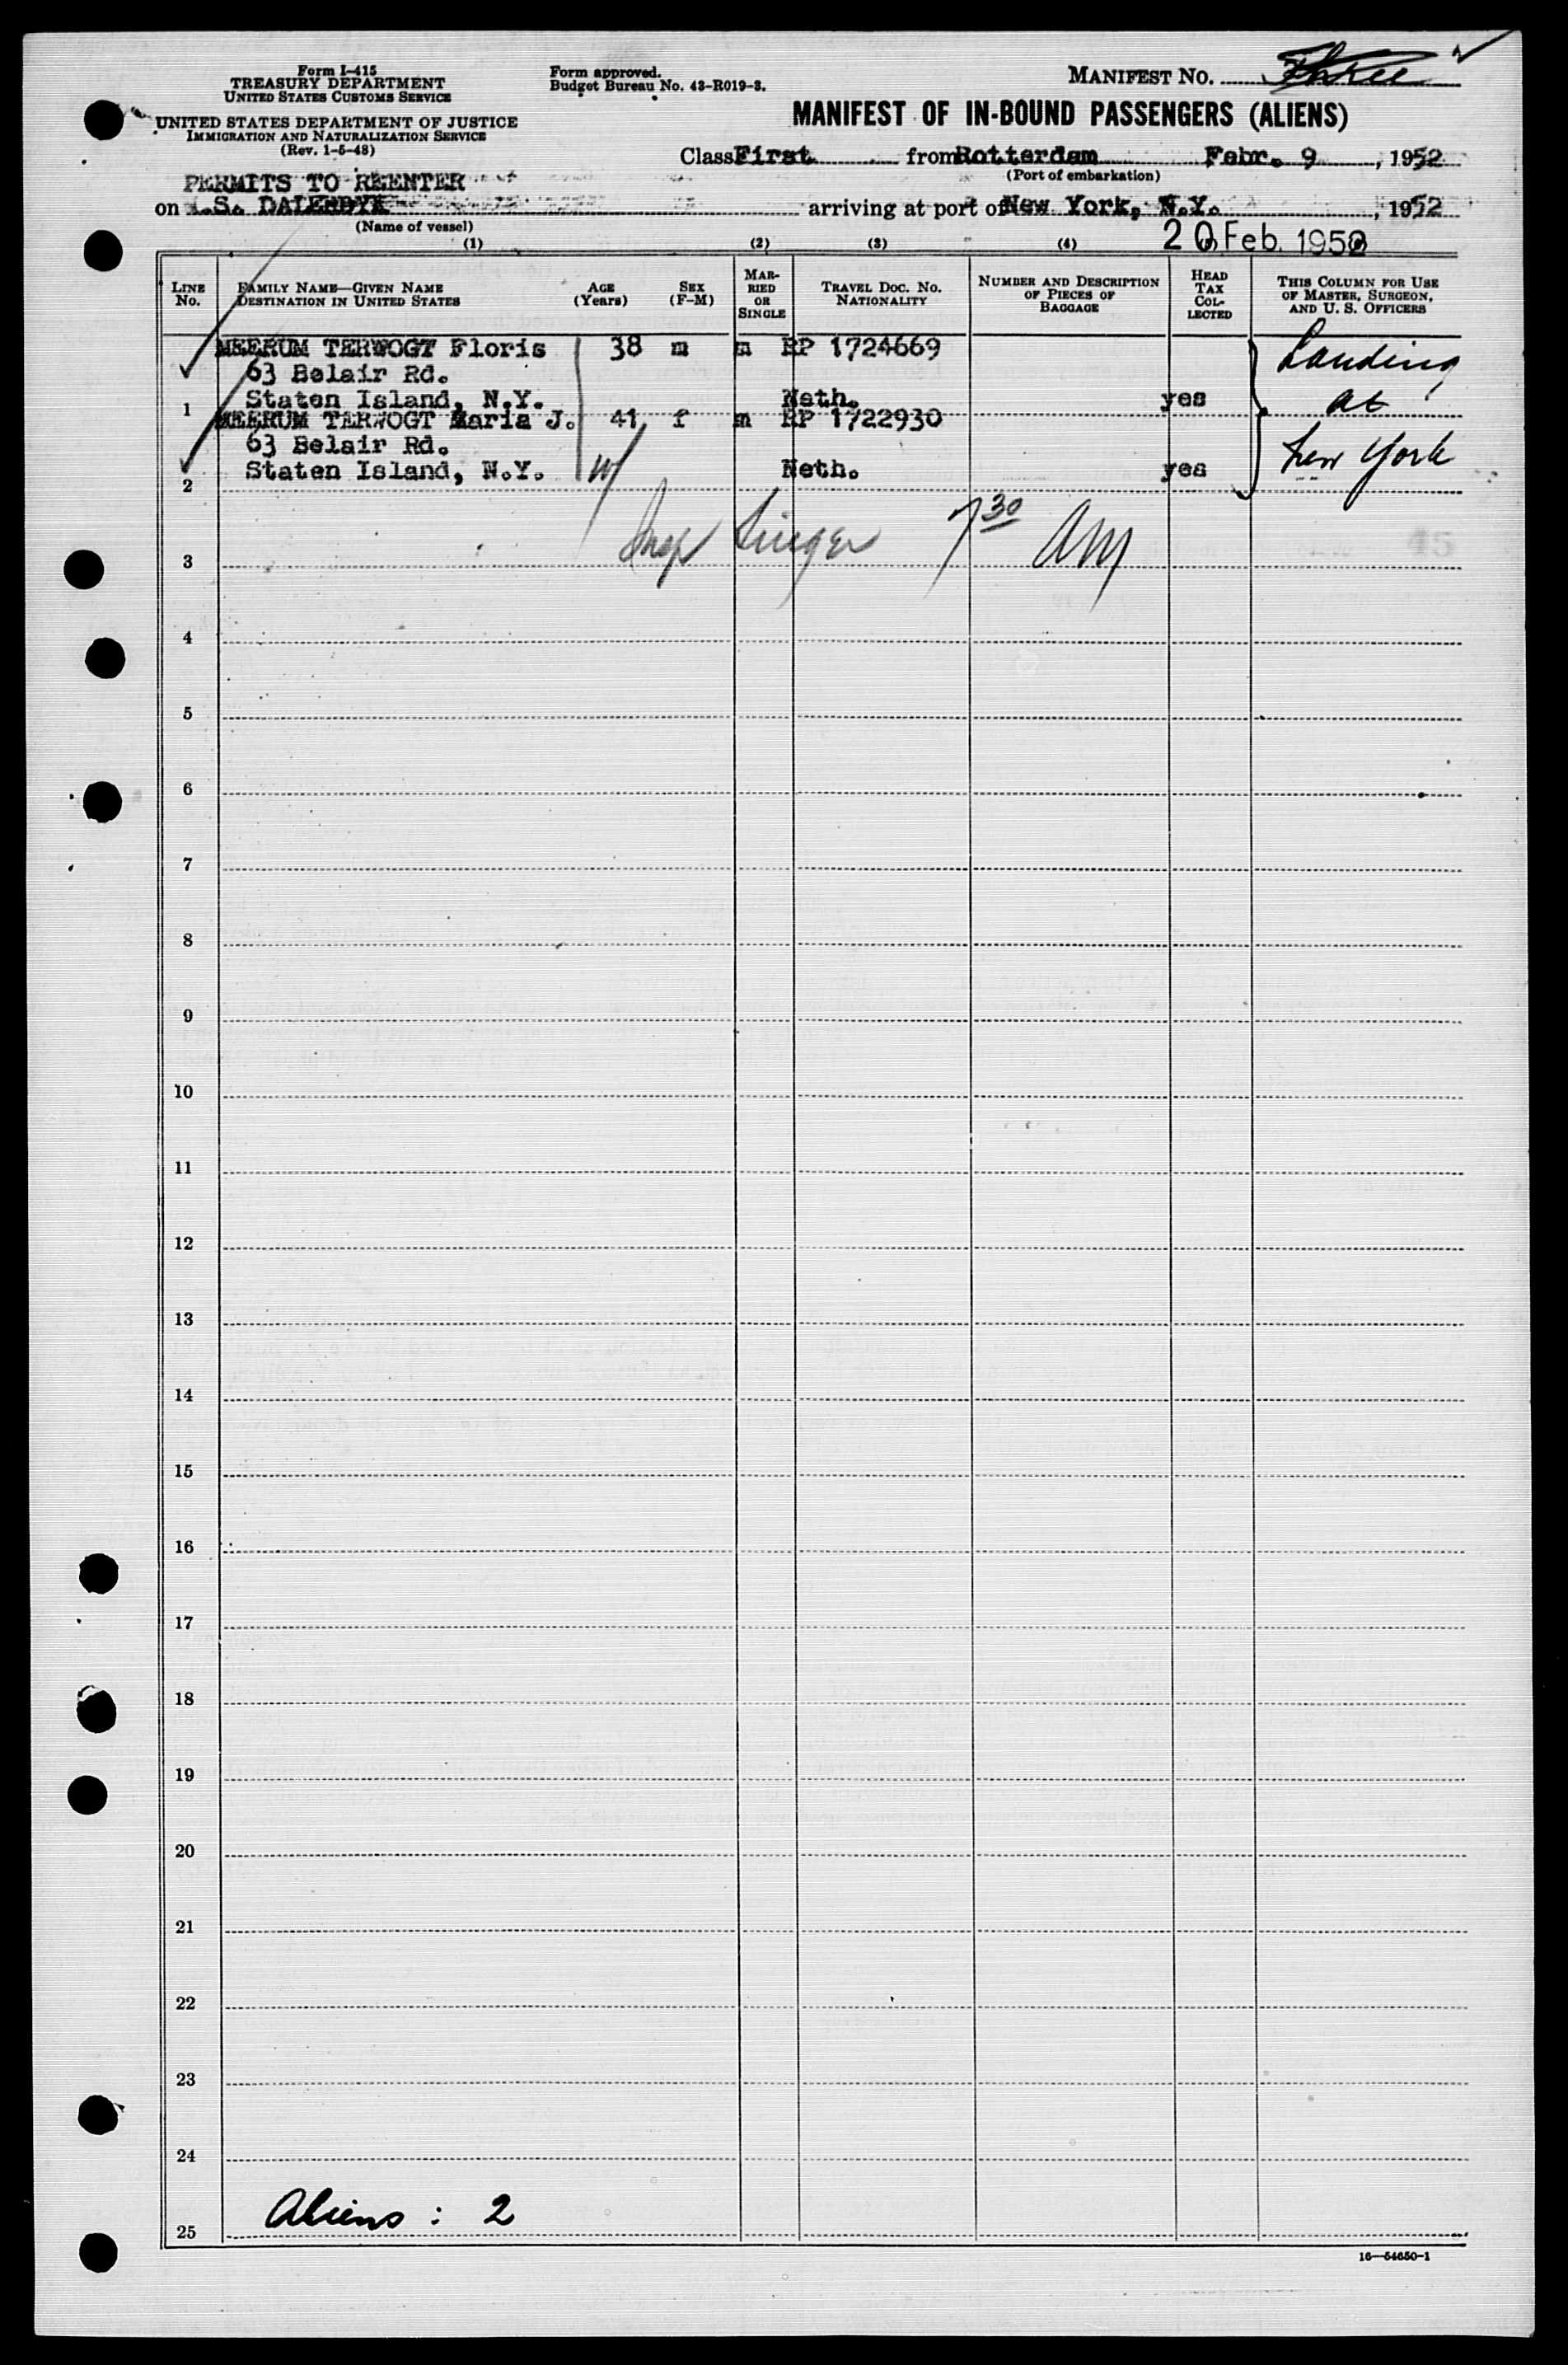 Form I-415
TREASURY DEPARTMENT
UNITED STATES CUSTOMS SERVICE
UNITED STATES DEPARTMENT OF JUSTICE
IMMIGRATION AND NATURALIZATION SERVICE
(Rev. 1-5-48)
Form approved.
Budget Bureau No. 43-R019-3.
MANIFEST NO. Three
MANIFEST OF IN-BOUND PASSENGERS (ALIENS)
Class First from Rotterdam Febr. 9, 1952
(Port of embarkation)
PERMITS TO REENTER
on .S. DALERDYK arriving at port of New York, N.Y., 1952
(Name of vessel)
20 Feb. 1952
(1) (2) (3) (4)
LINE No. FAMILY NAME—GIVEN NAME DESTINATION IN UNITED STATES AGE (Years) SEX (F-M) MARRIED OR SINGLE TRAVEL DOC. NO. NATIONALITY NUMBER AND DESCRIPTION OF PIECES OF BAGGAGE HEAD TAX COLLECTED THIS COLUMN FOR USE OF MASTER, SURGEON, AND U. S. OFFICERS
MEERUM TERWOGT Floris 38 m m RP 1724669
63 Belair Rd.
1 Staten Island, N.Y. Neth. yes
MEERUM TERWOGT Maria J. 41 f m RP 1722930
63 Belair Rd.
2 Staten Island, N.Y. Neth. yes
Landing
at
New York
Insp Singer 7 30 AM
3
4
5
6
7
8
9
10
11
12
13
14
15
16
17
18
19
20
21
22
23
24
25 Aliens : 2
16—54650-1